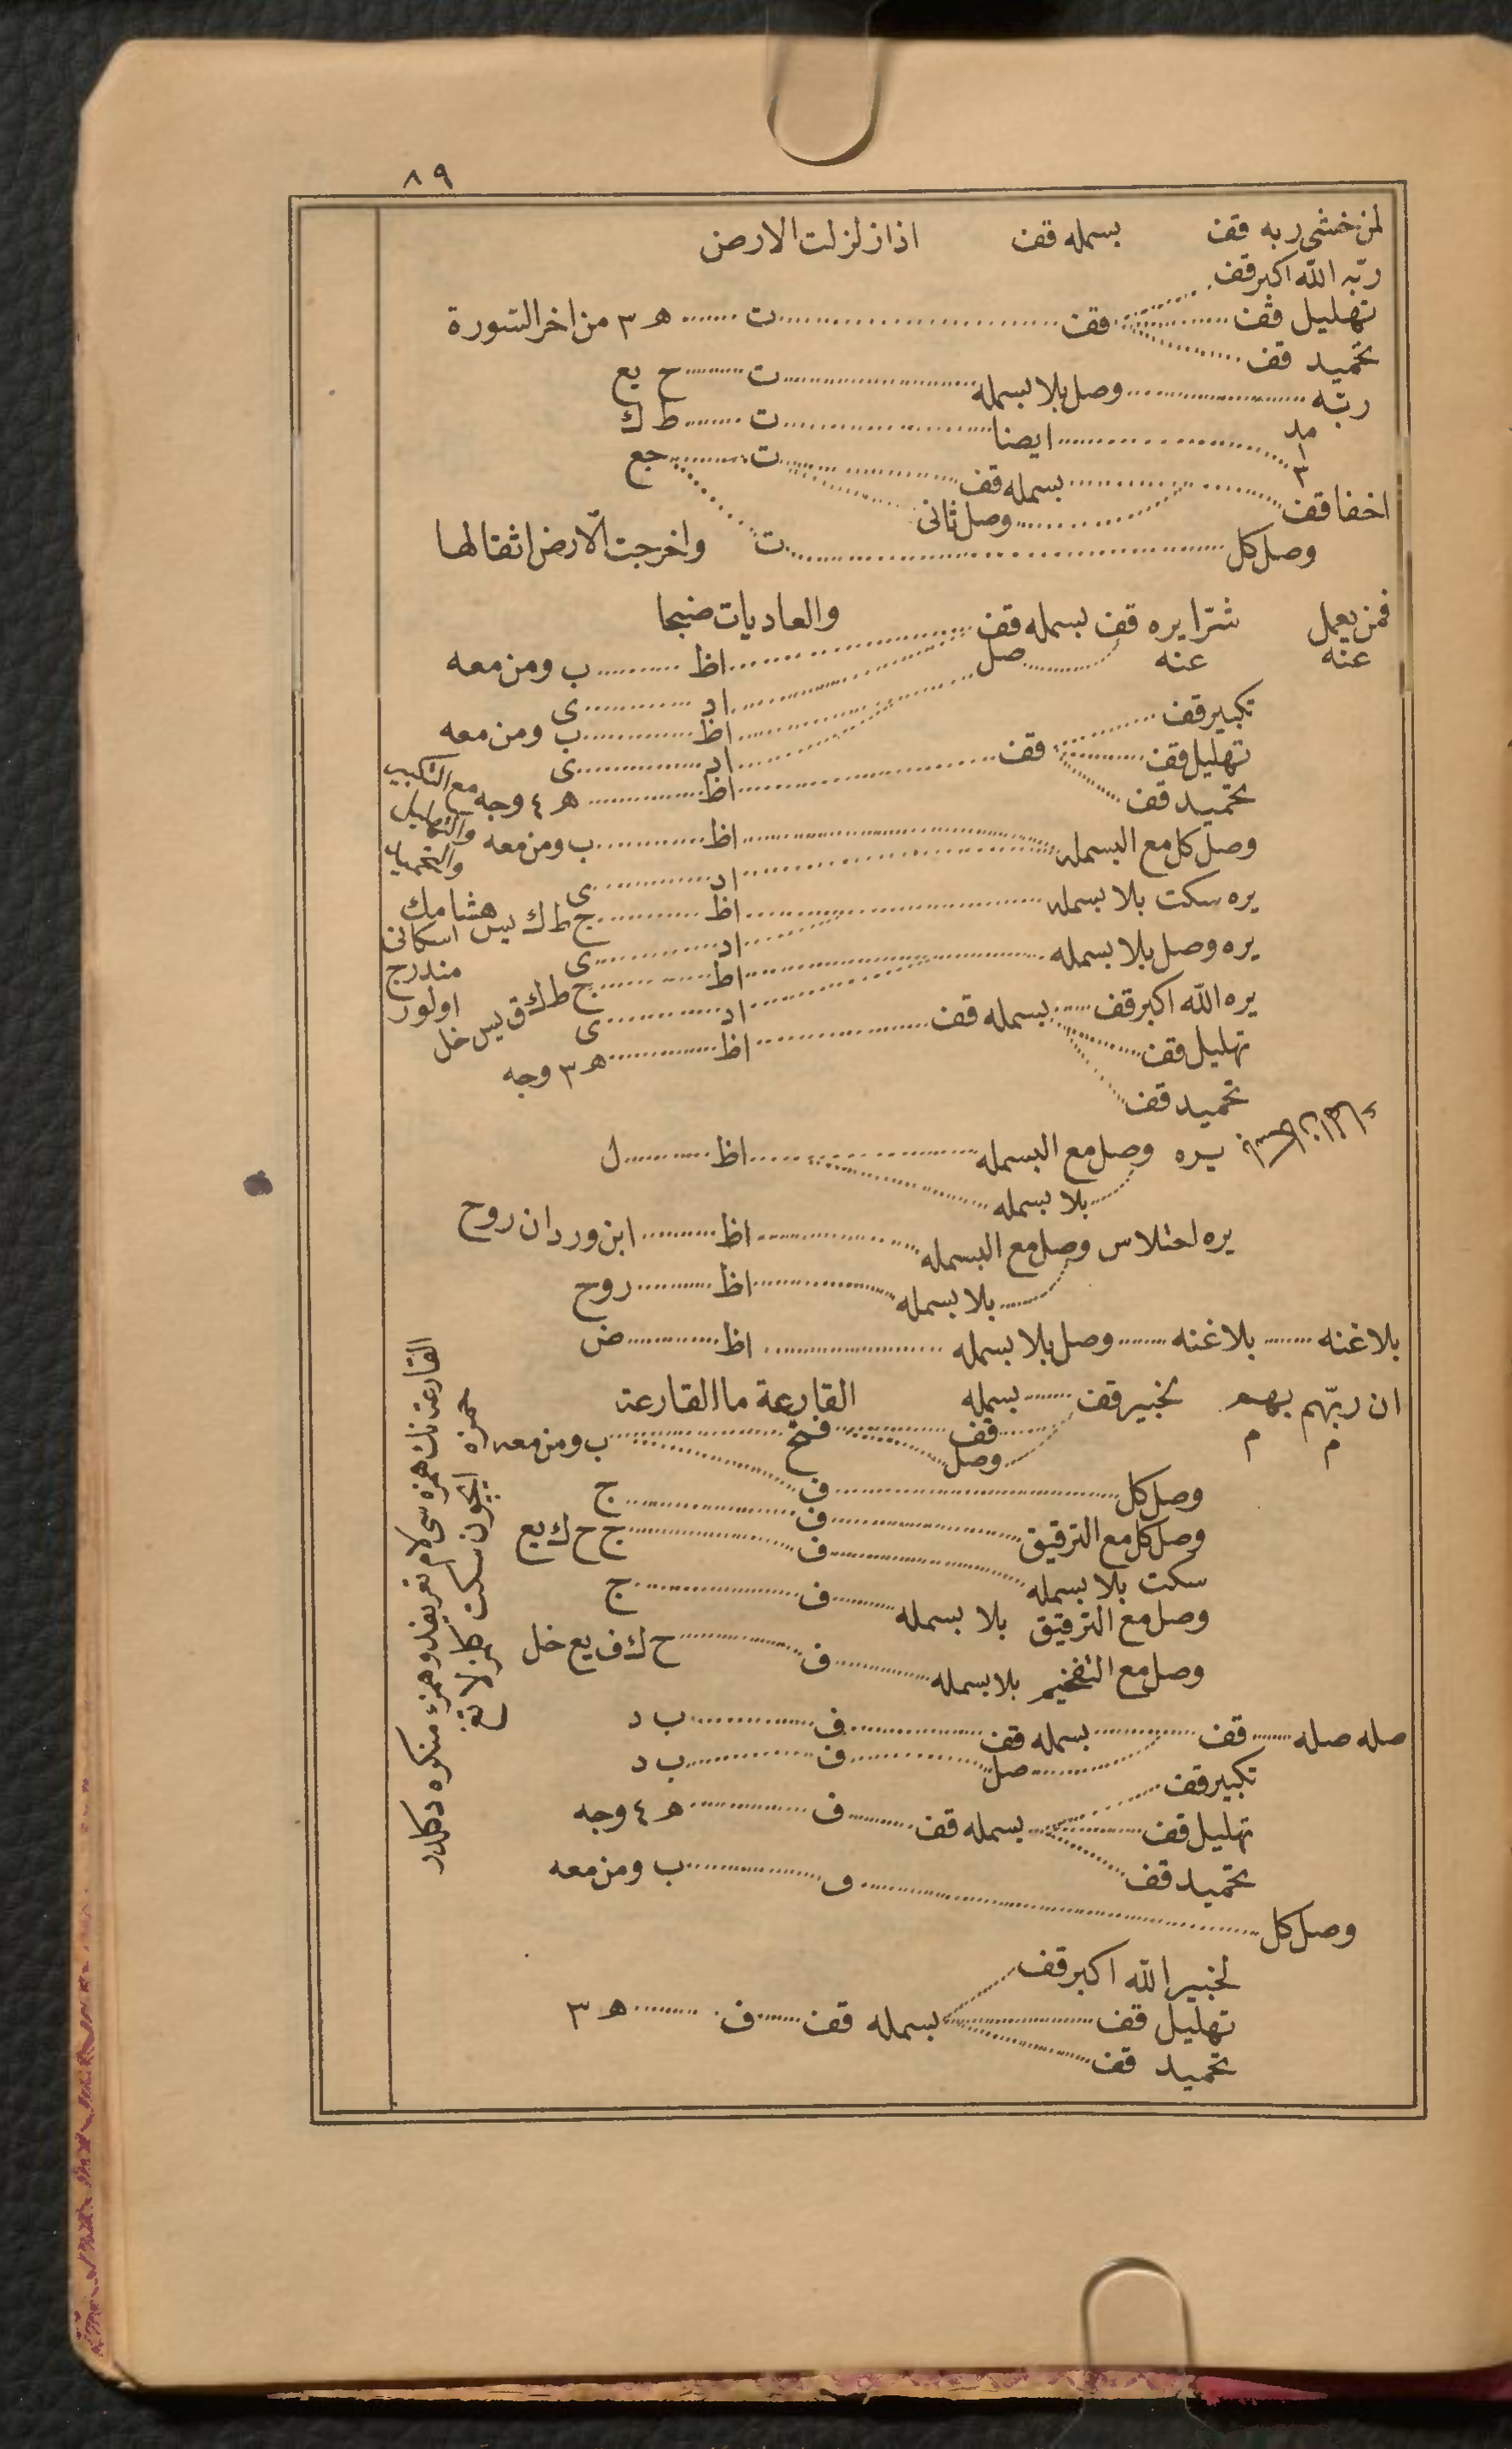 ٨٩
لمن خشى ربه قف بسمله قف اذا زلزلت الارض
ربّه الله اكبر قف
تهليل قف قف ت ه ٣ من اخر السّورة
تحميد قف
ربّه وصل بلا بسمله ت ح يع
مد ١ ٣ ايضا ت ط ك
اخفا قف بسمله قف ت جع
وصل ثانى
وصل كل ت واخرجت الارض اثقالها
فمن يعمل شرّا يره قف بسمله قف والعاديات ضبحا
عنه عنه صل اظ ب ومن معه
اد ى
اظ ب ومن معه
تكبير قف اد ى
تهليل قف قف اظ ه ٤ وجه مع التكبير والتهليل والتحميد
تحميد قف
وصل كل مع البسمله اظ ب ومن معه
اد ى
يره سكت بلا بسمله اظ ج ط ك يس هشامك اسكانى مندرج اولور
اد ى
يره وصل بلا بسمله اظ ج ط ك ق يس خل
اد ى
يره الله اكبر قف بسمله قف اظ ه ٣ وجه
تهليل قف
تحميد قف
يره وصل مع البسمله اظ ل
بلا بسمله
يره اختلاس وصل مع البسمله اظ ابن وردان روح
بلا بسمله اظ روح
بلا غنه بلا غنه وصل بلا بسمله اظ ض
ان ربّهم بهم لخبير قف بسمله القارعة ما القارعة
م م قف فخ ب ومن معه
وصل
وصل كل ف ج
وصل كل مع الترقيق ف ج ح ك يع
سكت بلا بسمله ف
وصل مع الترقيق بلا بسمله ف ج
وصل مع التفخيم بلا بسمله ف ح ك ف يع خل
صله صله قف بسمله قف ف ب د
صل ف ب د
تكبير قف
تهليل قف بسمله قف ف ه ٤ وجه
تحميد قف
وصل كل ف ب ومن معه
لخبير الله اكبر قف
تهليل قف بسمله قف ف ه ٣
تحميد قف
القارعة نك همزه سى لام تعريفدر همزۀ منكره دكلدر
حمزه ايچون سكت كلز